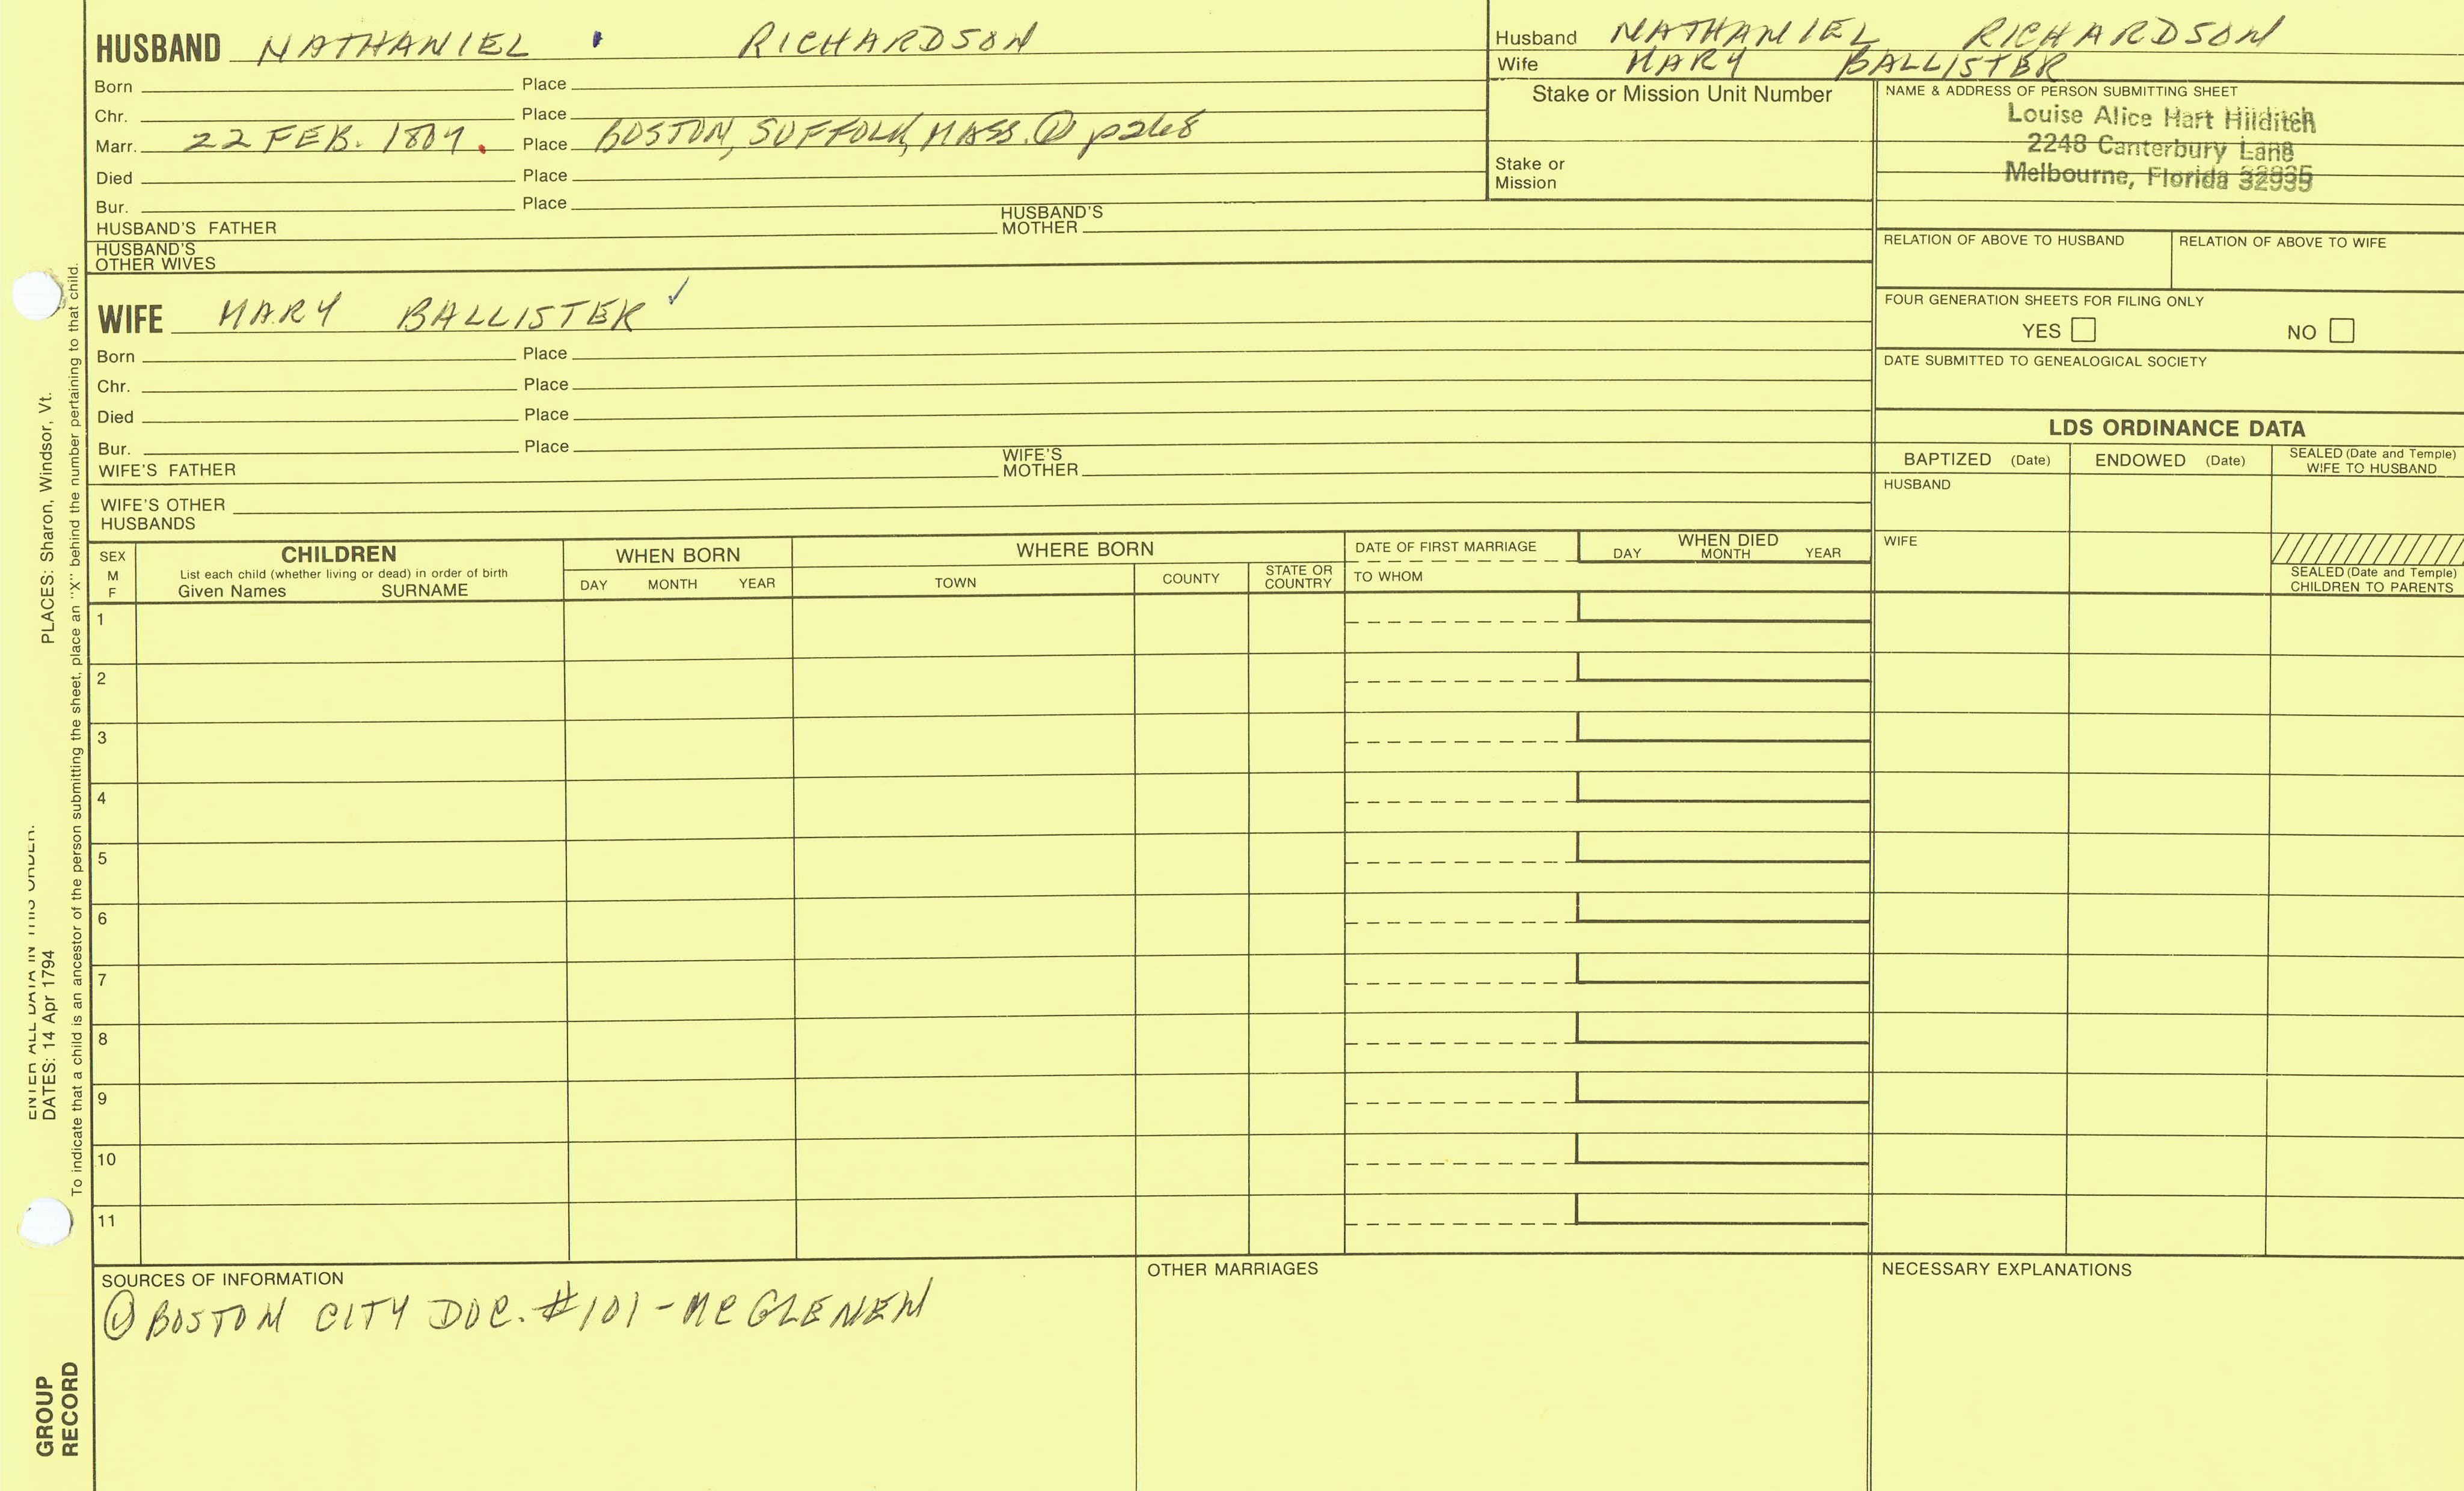 HUSBAND NATHANIEL RICHARDSON
Born Place
Chr. Place
Marr. 22 FEB. 1809. Place BOSTON, SUFFOLK, MASS. ① p268
Died Place
Bur. Place
HUSBAND'S FATHER HUSBAND'S MOTHER
HUSBAND'S
OTHER WIVES
Husband NATHANIEL RICHARDSON
Wife MARY BALLISTER
Stake or Mission Unit Number
Stake or
Mission
NAME & ADDRESS OF PERSON SUBMITTING SHEET
Louise Alice Hart Hilditch
2248 Canterbury Lane
Melbourne, Florida 32935
RELATION OF ABOVE TO HUSBAND RELATION OF ABOVE TO WIFE
FOUR GENERATION SHEETS FOR FILING ONLY
YES NO
DATE SUBMITTED TO GENEALOGICAL SOCIETY
WIFE MARY BALLISTER ✓
Born Place
Chr. Place
Died Place
Bur. Place
WIFE'S FATHER WIFE'S MOTHER
WIFE'S OTHER
HUSBANDS
LDS ORDINANCE DATA
BAPTIZED (Date) ENDOWED (Date) SEALED (Date and Temple) WIFE TO HUSBAND
HUSBAND
WIFE
SEALED (Date and Temple)
CHILDREN TO PARENTS
SEX
M
F
CHILDREN
List each child (whether living or dead) in order of birth
Given Names SURNAME
WHEN BORN
DAY MONTH YEAR
WHERE BORN
TOWN COUNTY STATE OR COUNTRY
DATE OF FIRST MARRIAGE
TO WHOM
WHEN DIED
DAY MONTH YEAR
1
2
3
4
5
6
7
8
9
10
11
SOURCES OF INFORMATION
① BOSTON CITY DOC. #101 - McGLENEN
OTHER MARRIAGES
NECESSARY EXPLANATIONS
PLACES: Sharon, Windsor, Vt.
ENTER ALL DATA IN THIS ORDER:
DATES: 14 Apr 1794
To indicate that a child is an ancestor of the person submitting the sheet, place an "X" behind the number pertaining to that child.
GROUP
RECORD